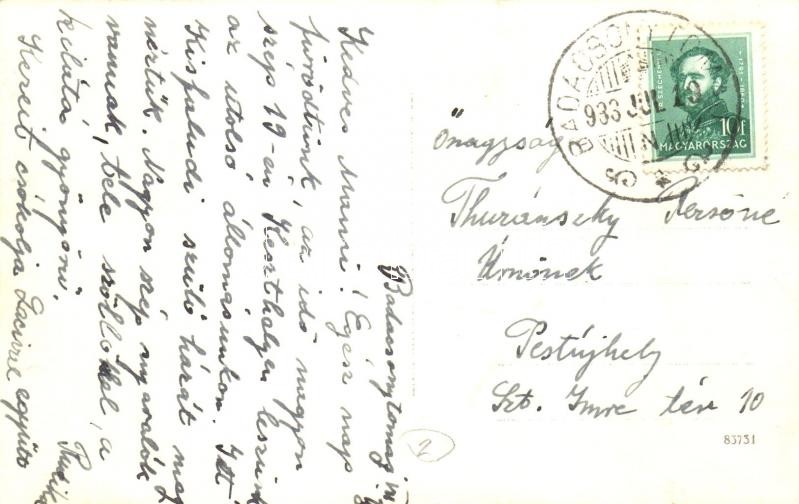 Badacsonytomaj
Kedves Munni! Egész nap
fürödtünk, az idő nagyon
szép 19-én Keszthelyen leszünk
az utolsó állomásunkon. Itt
Kisfaludi szülő házát meg
néztük. Nagyon szép nyaralók
vannak, tele szőllőkkel, a
kilátás gyönyörű.
Kezeit csókolja Lacival együtt
BADACSONYTO
933 JUL 19
SZÉCHENYI
10f
MAGYARORSZÁG
Önagysága
Thuránszky Persőné
Úrnőnek
Pestújhely
Szt. Imre tér 10
2
83731